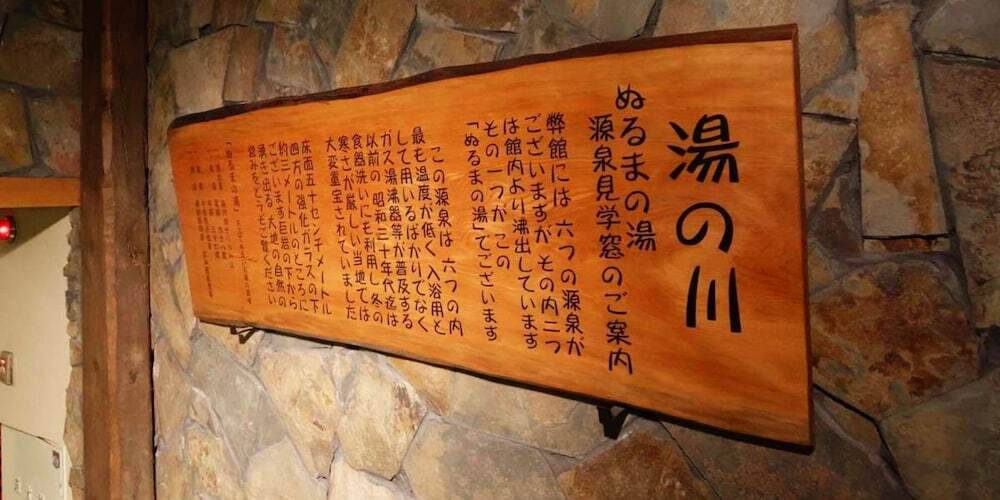 湯の川
ぬるまの湯
源泉見学窓のご案内
弊館には 六つの源泉が
ございますが その内二つ
は館内より沸出しています
その一つが この
「ぬるまの湯」でございます
この源泉は 六つの内
最も温度が低く 入浴用と
して用いるばかりでなく
ガス湯沸器等が普及する
以前の 昭和三十年代迄は
食器洗いにも利用し 冬の
寒さが厳しい当地では
大変重宝されていました
床面五十センチメートル
四方の強化ガラスの下
約三メートルのところに
ございます 巨岩の下から
湧き出る 大地の自然の